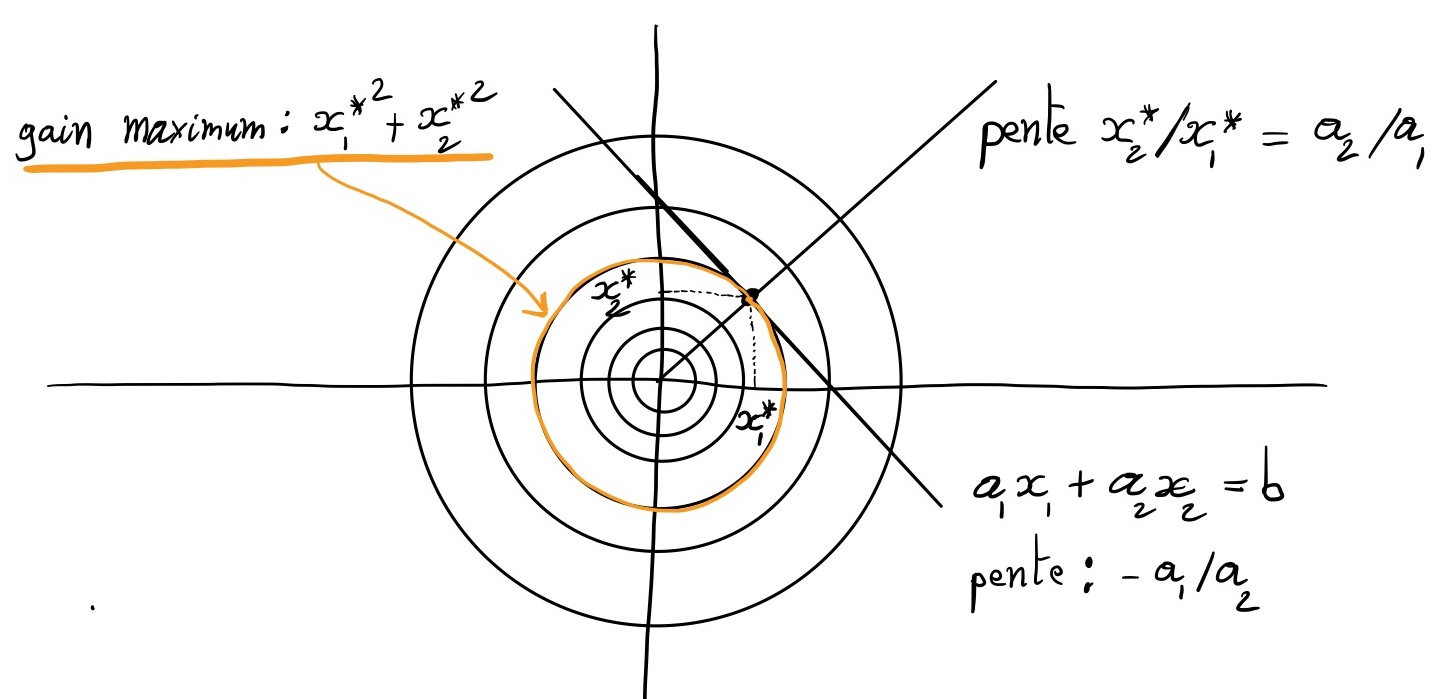 gain maximum : x₁*² + x₂*²
pente x₂*/x₁* = a₂/a₁
x₂*
x₁*
a₁x₁ + a₂x₂ = b
pente : - a₁/a₂